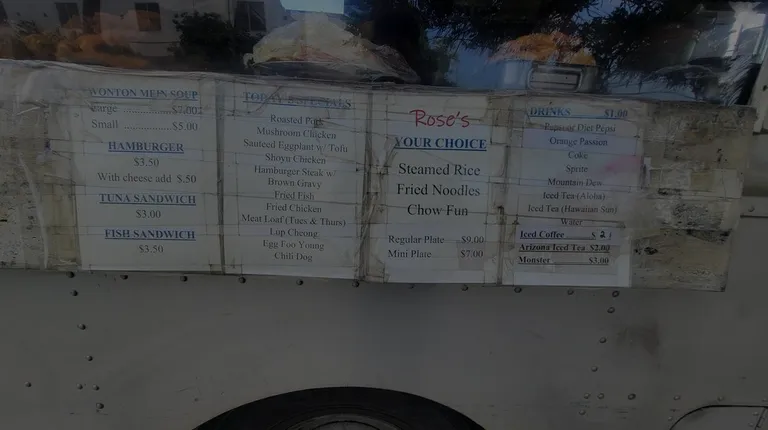 WONTON MEIN SOUP
Large ............... $7.00
Small ............... $5.00
HAMBURGER
$3.50
With cheese add $.50
TUNA SANDWICH
$3.00
FISH SANDWICH
$3.50
TODAY SPECIALS
Roasted Pork
Mushroom Chicken
Sauteed Eggplant w/ Tofu
Shoyu Chicken
Hamburger Steak w/
Brown Gravy
Fried Fish
Fried Chicken
Meat Loaf (Tues & Thurs)
Lup Cheong
Egg Foo Young
Chili Dog
Rose's
YOUR CHOICE
Steamed Rice
Fried Noodles
Chow Fun
Regular Plate $9.00
Mini Plate $7.00
DRINKS $1.00
Pepsi or Diet Pepsi
Orange Passion
Coke
Sprite
Mountain Dew
Iced Tea (Aloha)
Iced Tea (Hawaiian Sun)
Water
Iced Coffee $ 2
Arizona Iced Tea $2.00
Monster $3.00